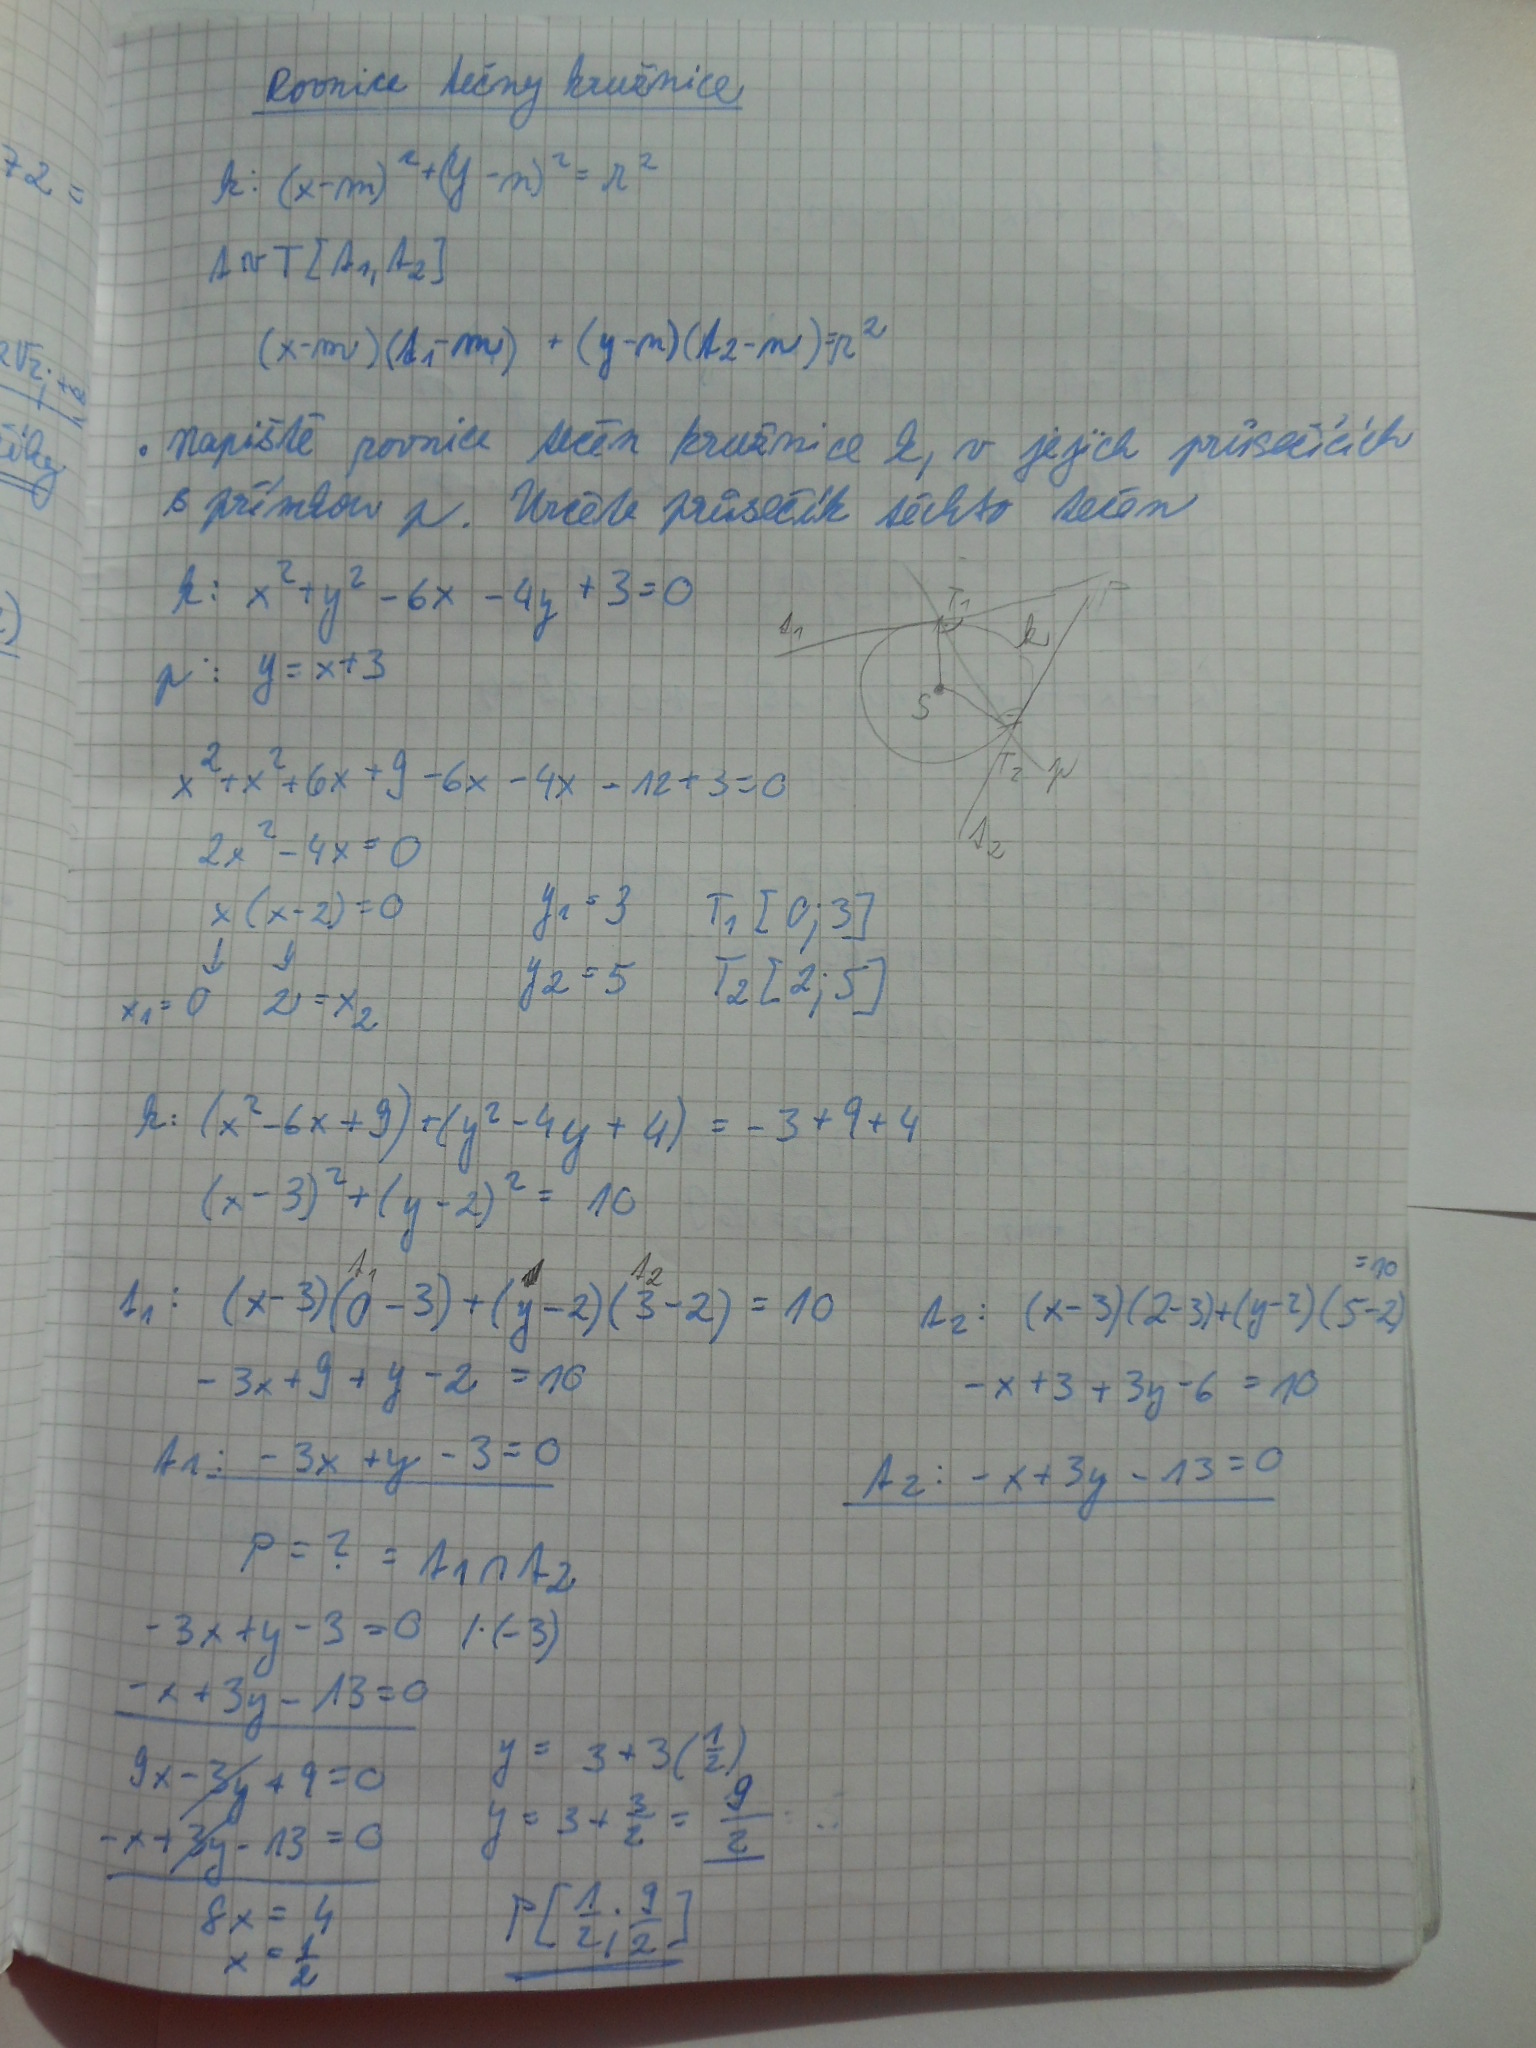 Rovnice tečny kružnice
k: (x-m)² + (y-n)² = r²
t v T[t₁, t₂]
(x-m)(t₁-m) + (y-n)(t₂-n) = r²
• Napiště rovnice tečen kružnice k, v jejich průsečících
s přímkou p. Určete průsečík těchto tečen
k: x² + y² - 6x - 4y + 3 = 0
p: y = x+3
T₁ P
t₁ k
S
T₂ p
t₂
x² + x² + 6x + 9 - 6x - 4x - 12 + 3 = 0
2x² - 4x = 0
x(x-2) = 0 y₁ = 3 T₁[0;3]
↓ ↓
x₁ = 0 2 = x₂ y₂ = 5 T₂[2;5]
k: (x² - 6x + 9) + (y² - 4y + 4) = -3 + 9 + 4
(x-3)² + (y-2)² = 10
t₁ t₂
t₁: (x-3)(0-3) + (y-2)(3-2) = 10
-3x + 9 + y - 2 = 10
t₁: -3x + y - 3 = 0
t₂: (x-3)(2-3) + (y-2)(5-2) = 10
-x + 3 + 3y - 6 = 10
t₂: -x + 3y - 13 = 0
P = ? = t₁ ∩ t₂
-3x + y - 3 = 0 /·(-3)
-x + 3y - 13 = 0
9x - 3y + 9 = 0
-x + 3y - 13 = 0
8x = 4
x = 1/2
y = 3 + 3(1/2)
y = 3 + 3/2 = 9/2
P[1/2; 9/2]